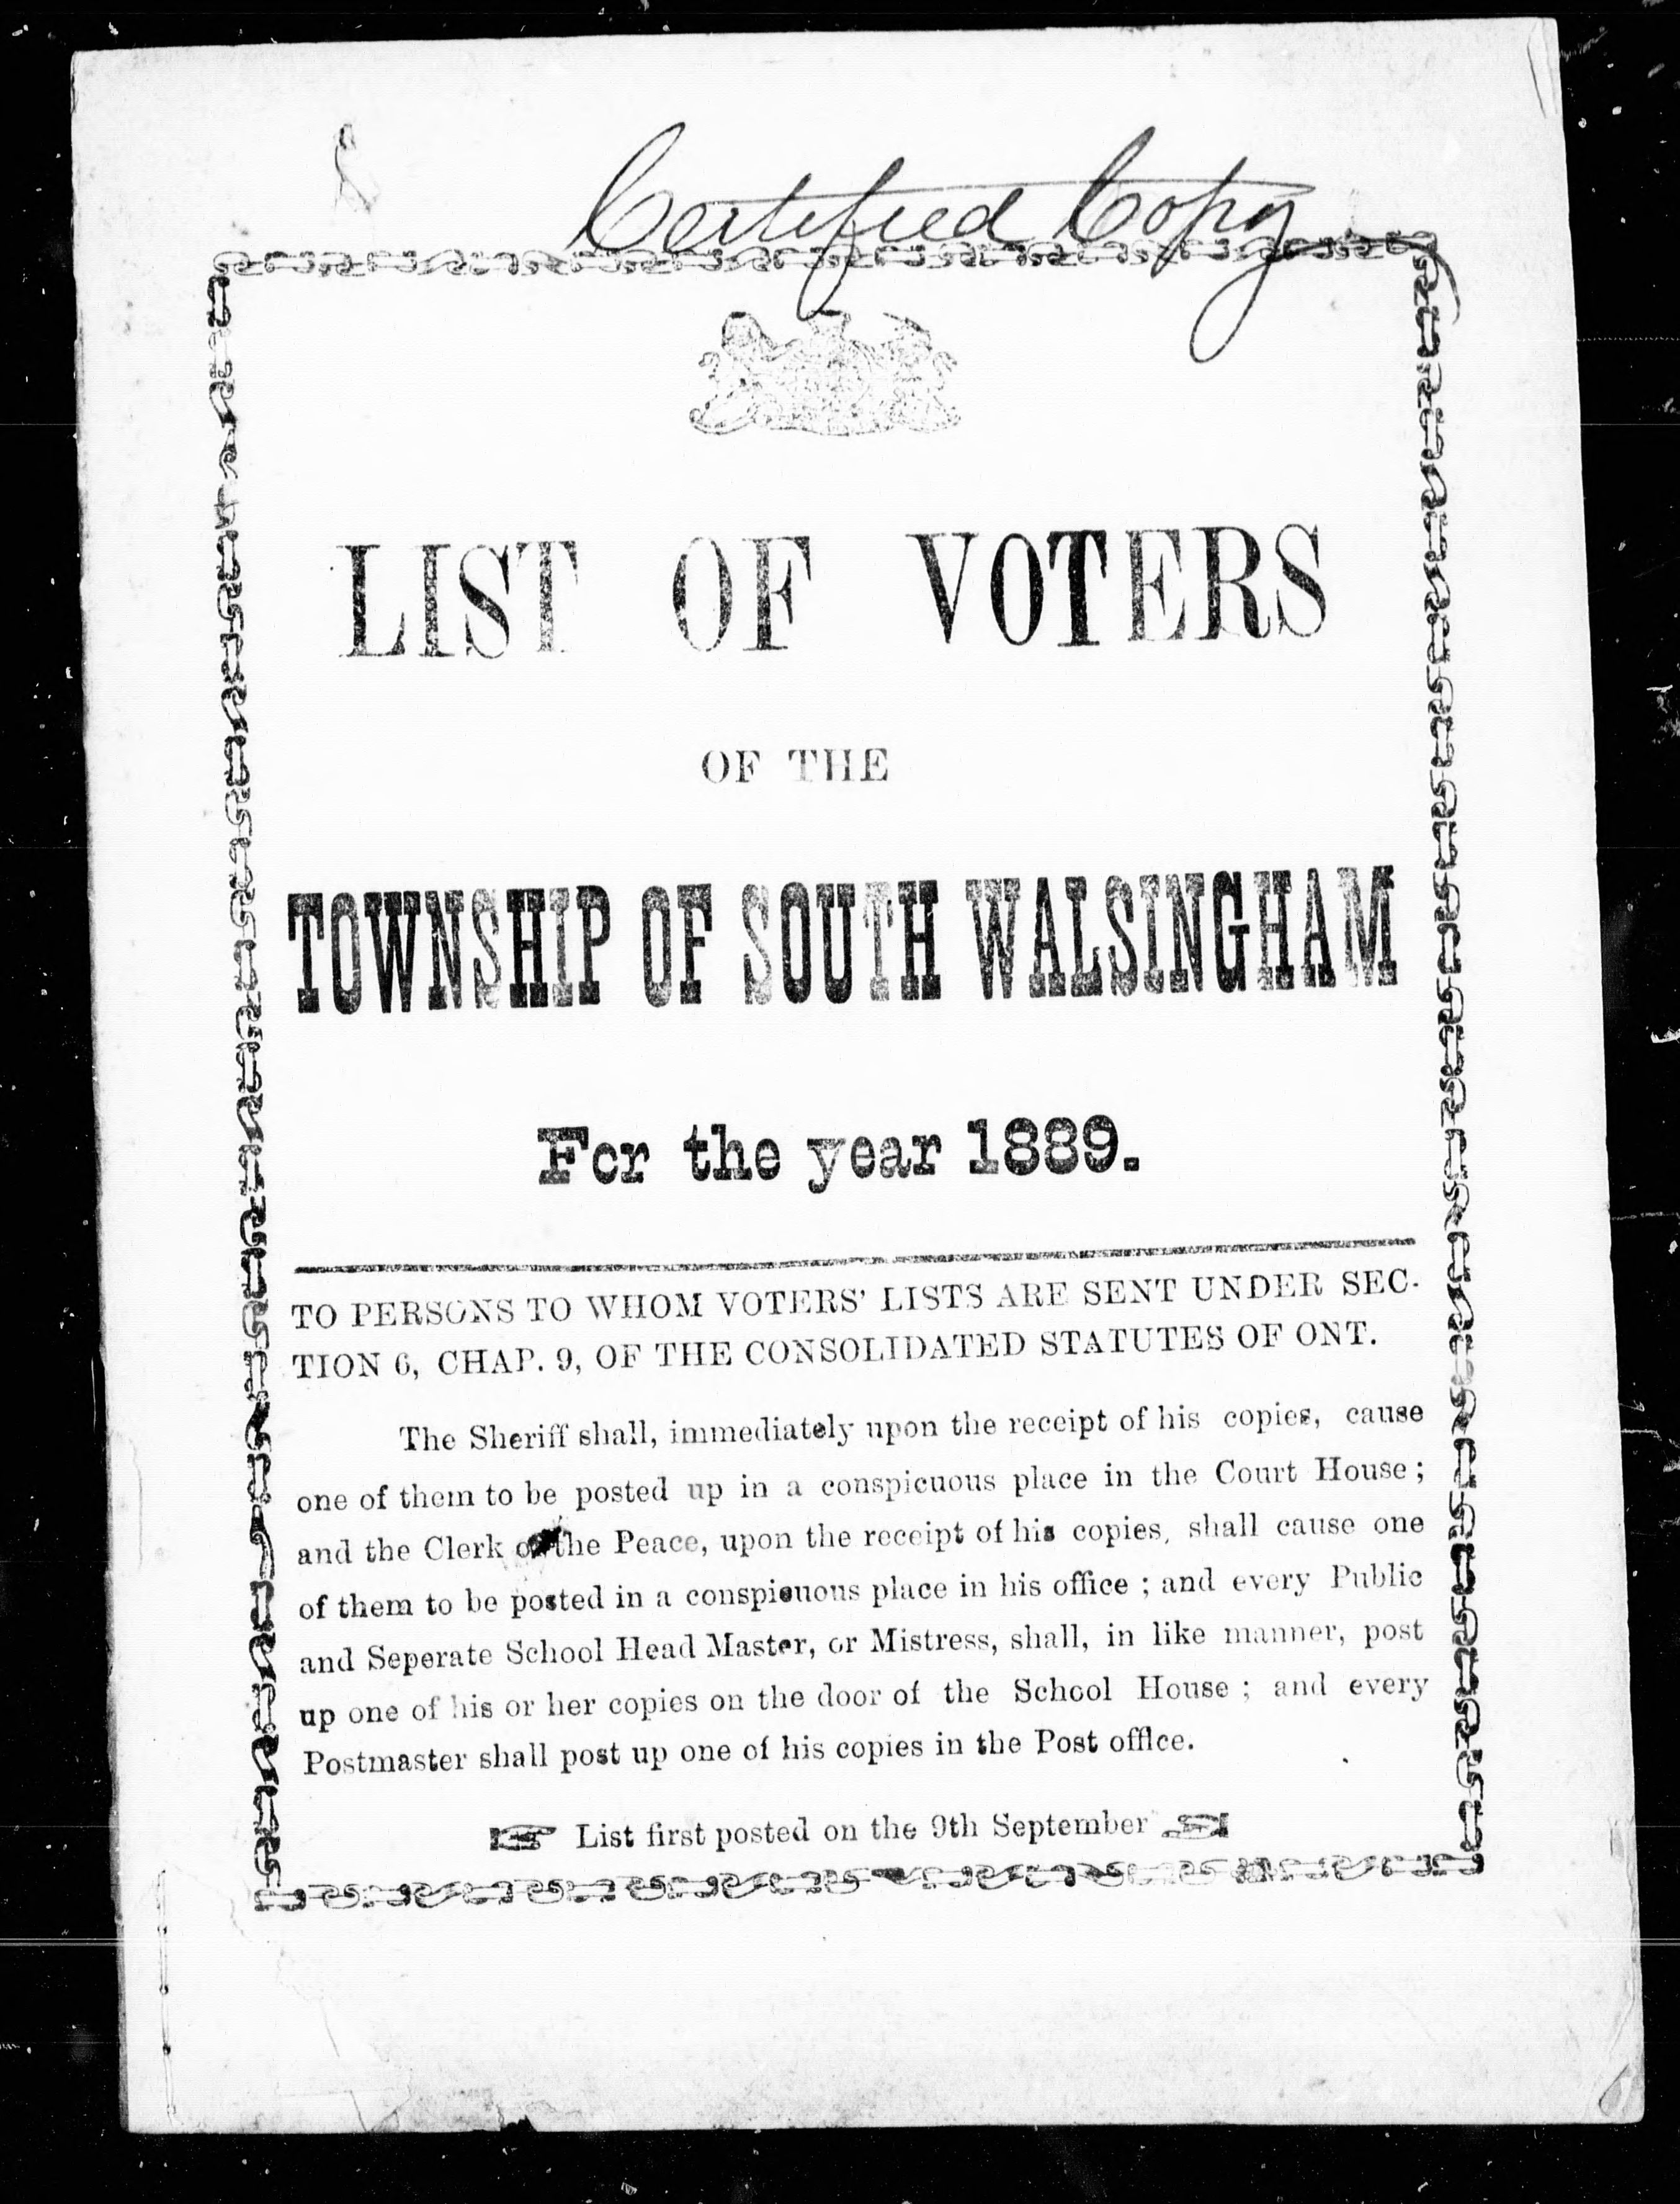 Certified Copy
LIST OF VOTERS
OF THE
TOWNSHIP OF SOUTH WALSINGHAM
For the year 1889.
TO PERSONS TO WHOM VOTERS' LISTS ARE SENT UNDER SEC-
TION 6, CHAP. 9, OF THE CONSOLIDATED STATUTES OF ONT.
The Sheriff shall, immediately upon the receipt of his copies, cause
one of them to be posted up in a conspicuous place in the Court House;
and the Clerk of the Peace, upon the receipt of his copies, shall cause one
of them to be posted in a conspicuous place in his office ; and every Public
and Seperate School Head Master, or Mistress, shall, in like manner, post
up one of his or her copies on the door of the School House ; and every
Postmaster shall post up one of his copies in the Post office.
☞ List first posted on the 9th September ☜